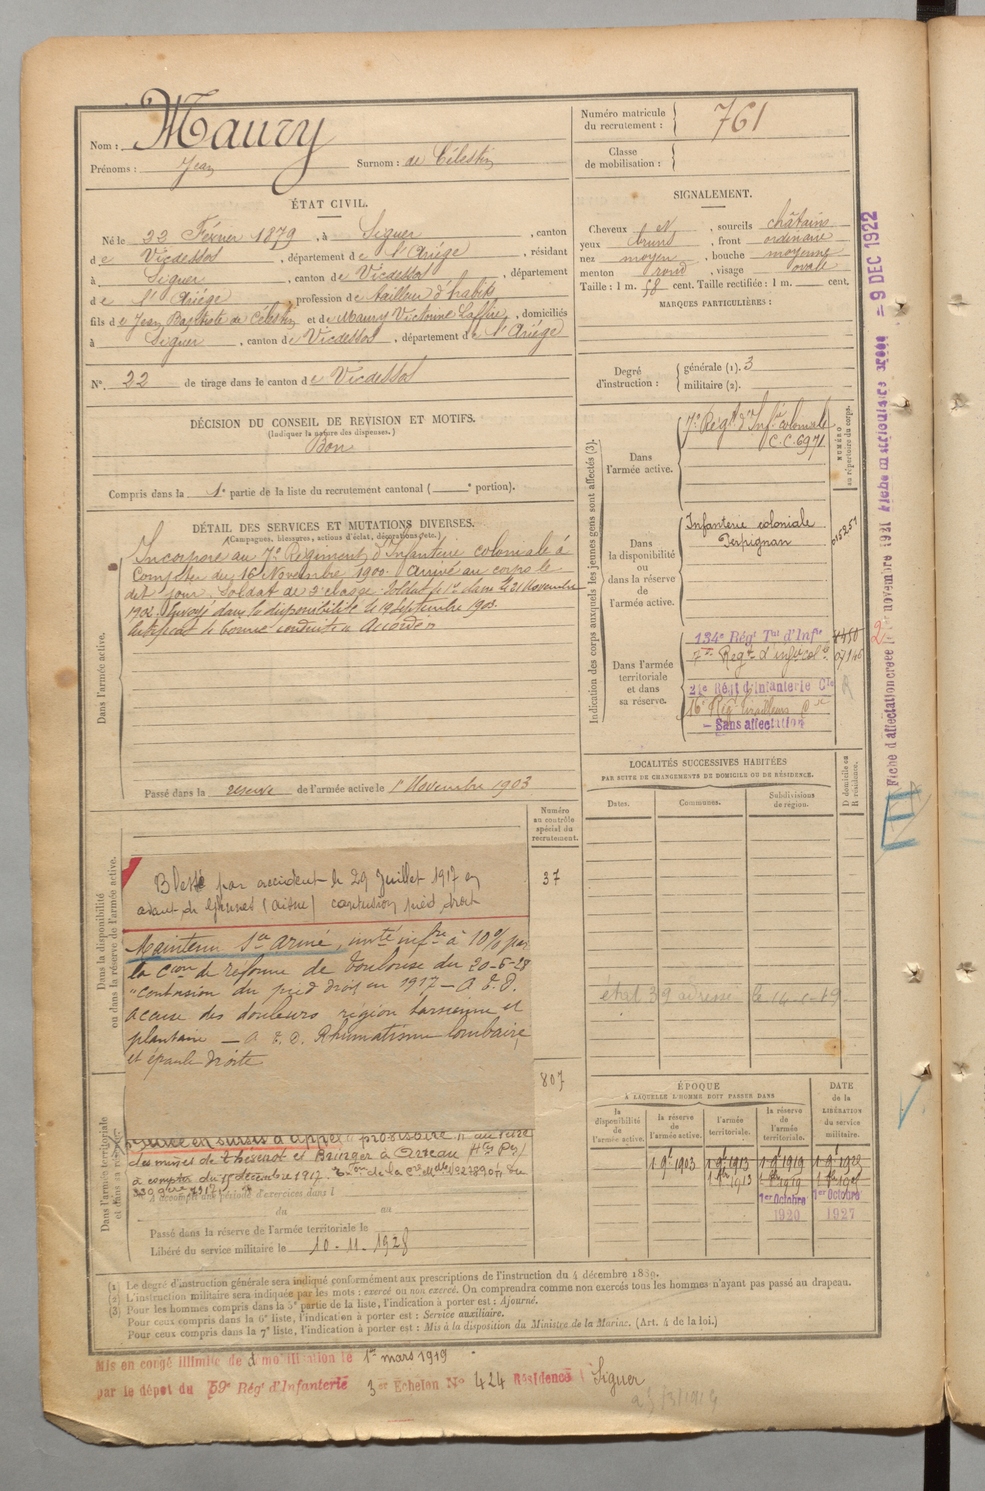 Nom : Maury
Prénoms : Jean Surnom : de Célestin
ÉTAT CIVIL.
Né le 22 Février 1879, à Siguer, canton
de Vicdessos, département de l'Ariége, résidant
à Siguer, canton de Vicdessos, département
de l'Ariége, profession de tailleur d'habits
fils de Jean Baptiste de Célestin et de Maury Victorine Laffire, domiciliés
à Siguer, canton de Vicdessos, département de l'Ariége
N° 22 de tirage dans le canton de Vicdessos
DÉCISION DU CONSEIL DE REVISION ET MOTIFS.
(Indiquer la nature des dispenses.)
Bon
Compris dans la 1e partie de la liste du recrutement cantonal ( e portion).
DÉTAIL DES SERVICES ET MUTATIONS DIVERSES.
(Campagnes, blessures, actions d'éclat, décorations, etc.)
Dans l'armée active.
Incorporé au 7e Régiment d'Infanterie coloniale à
compter du 16 Novembre 1900. Arrivé au corps le
dit jour, soldat de 2e classe. Soldat de 1re classe le 21 Novembre
1902. Envoyé dans la disponibilité le 19 Septembre 1903.
Certificat de bonne conduite "Accordé"
Passé dans la réserve de l'armée active le 1er Novembre 1903
Dans la disponibilité
ou dans la réserve de l'armée active.
Numéro
au contrôle
spécial du
recrutement.
37
Blessé par accident le 29 Juillet 1917 en
avant de (Aisne) contusion pied droit
Maintenu Sce armé, invté infre à 10% par
la Cion de réforme de Toulouse du 20-6-28
"Contusion du pied droit en 1917 — A E. D.
accuse des douleurs région tarsienne et
plantaire — A E. D. Rhumatisme lombaire
et épaule droite
807
Dans l'armée territoriale
et dans sa réserve.
en sursis d'appel provisoire
des mines de et à Arreau Htes Pyr
à compter du 15 décembre 1917.
A accompli une période d'exercices dans l
du au
Passé dans la réserve de l'armée territoriale le
Libéré du service militaire le 10-11-1928
Numéro matricule
du recrutement : 761
Classe
de mobilisation :
SIGNALEMENT.
Cheveux N, sourcils châtains
yeux bruns, front ordinaire
nez moyen, bouche moyenne
menton rond, visage ovale
Taille : 1 m. 58 cent. Taille rectifiée : 1 m. cent.
MARQUES PARTICULIÈRES :
Degré
d'instruction :
générale (1). 3
militaire (2).
Indication des corps auxquels les jeunes gens sont affectés (3).
NUMÉRO
au répertoire du corps.
Dans
l'armée active.
7e Régt d'Infie coloniale
C.C. 6971
Dans
la disponibilité
ou
dans la réserve
de
l'armée active.
Infanterie coloniale
Perpignan
Dans l'armée
territoriale
et dans
sa réserve.
134e Régt Tal d'Infie
7e Régt d'infie cole
24e Régt d'Infanterie Cle
16e Rég Tirailleurs
— Sans affectation
LOCALITÉS SUCCESSIVES HABITÉES
PAR SUITE DE CHANGEMENTS DE DOMICILE OU DE RÉSIDENCE.
Dates.
Communes.
Subdivisions
de région.
D domicile ou
R résidence.
ÉPOQUE
À LAQUELLE L'HOMME DOIT PASSER DANS
la
disponibilité
de
l'armée active.
la réserve
de
l'armée active.
l'armée
territoriale.
la réserve
de
l'armée
territoriale.
DATE
de la
LIBÉRATION
du service
militaire.
1 9 1903
1 9 1913
1 9 1919
1er Octobre 1er Octobre
1920 1927
- 9 DEC 1922
Fiche d'affectation créée novembre 1921 Fiche matriculaire créée
(1) Le degré d'instruction générale sera indiqué conformément aux prescriptions de l'instruction du 4 décembre 1889.
(2) L'instruction militaire sera indiquée par les mots : exercé ou non exercé. On comprendra comme non exercés tous les hommes n'ayant pas passé au drapeau.
(3) Pour les hommes compris dans la 5e partie de la liste, l'indication à porter est : Ajourné.
Pour ceux compris dans la 6e liste, l'indication à porter est : Service auxiliaire.
Pour ceux compris dans la 7e liste, l'indication à porter est : Mis à la disposition du Ministre de la Marine. (Art. 4 de la loi.)
Mis en congé illimité de démobilisation le 1er mars 1919
par le dépot du 59e Régt d'Infanterie 3er Échelon N° 424 Résidence : Siguer